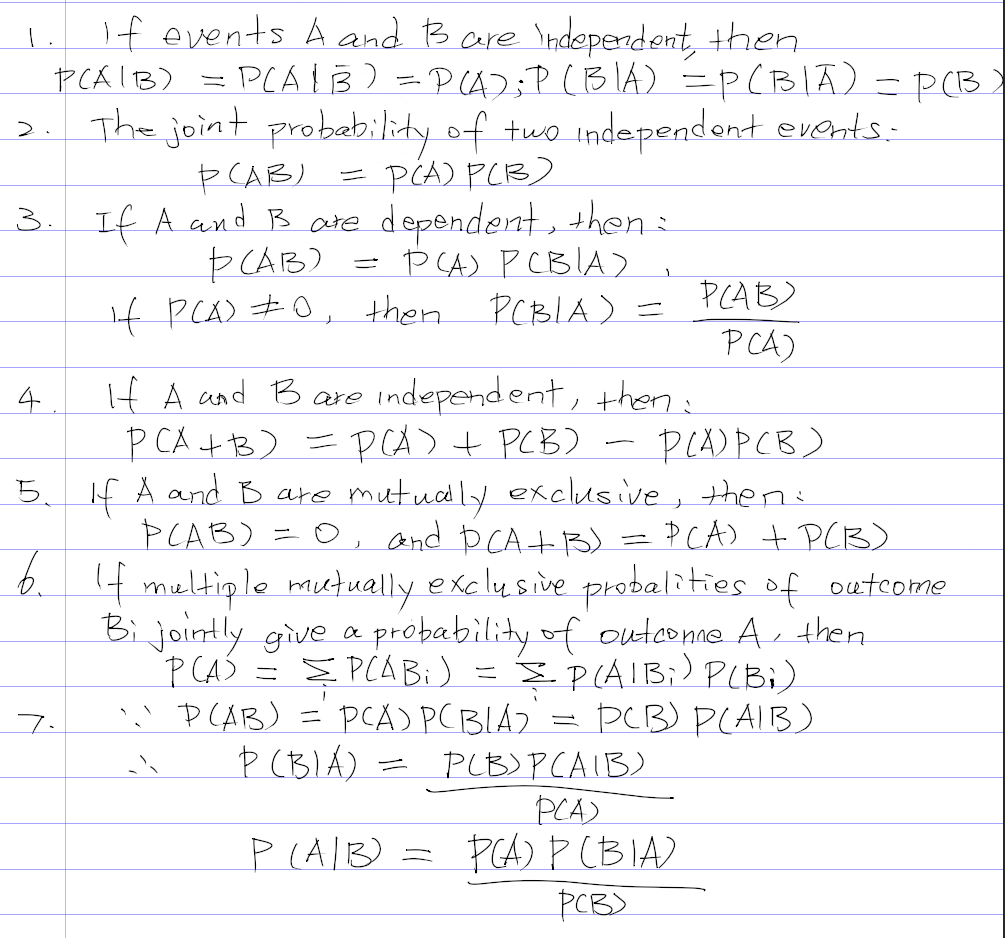 1. If events A and B are independent, then
P(A|B) = P(A|B̄) = P(A); P(B|A) = P(B|Ā) = P(B)
2. The joint probability of two independent events:
P(AB) = P(A) P(B)
3. If A and B are dependent, then:
P(AB) = P(A) P(B|A),
if P(A) ≠ 0, then P(B|A) = P(AB) / P(A)
4. If A and B are independent, then:
P(A+B) = P(A) + P(B) − P(A)P(B)
5. If A and B are mutually exclusive, then:
P(AB) = 0, and P(A+B) = P(A) + P(B)
6. If multiple mutually exclusive probalities of outcome
Bi jointly give a probability of outcome A, then
P(A) = Σi P(ABi) = Σi P(A|Bi) P(Bi)
7. ∵ P(AB) = P(A) P(B|A) = P(B) P(A|B)
∴ P(B|A) = P(B) P(A|B) / P(A)
P(A|B) = P(A) P(B|A) / P(B)